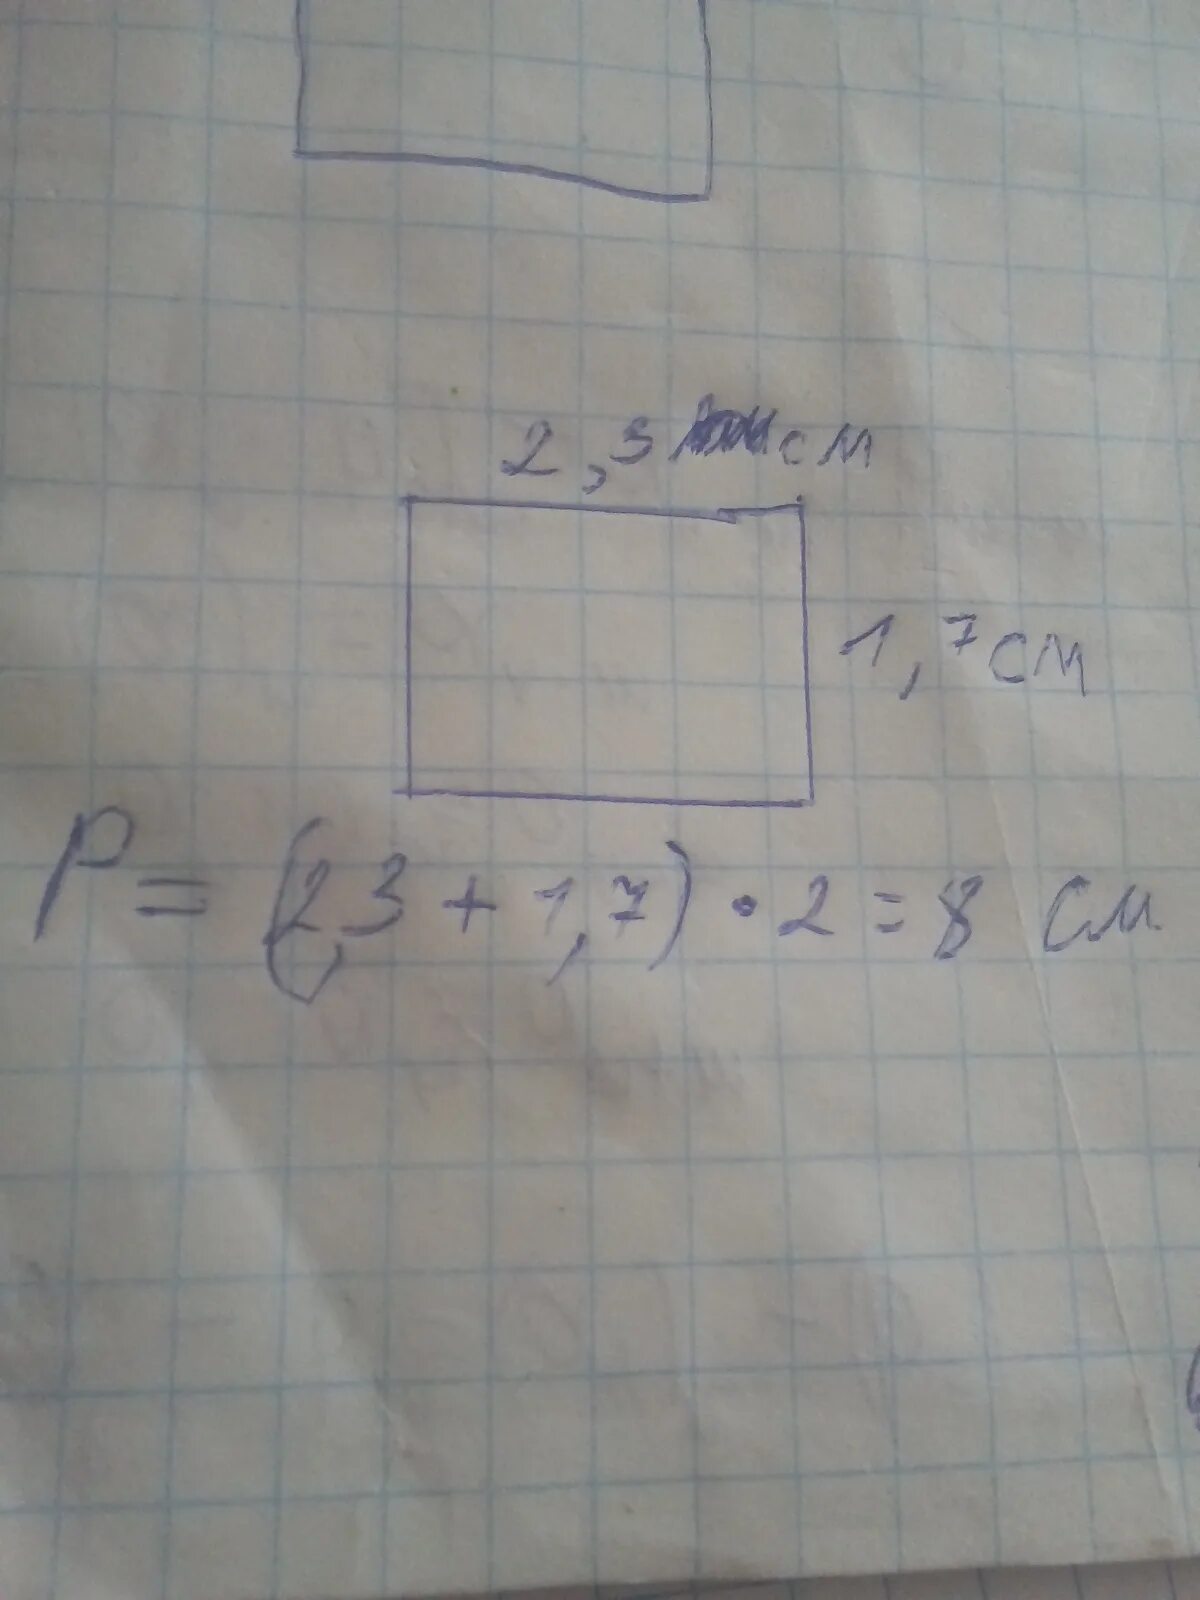 2,3 см
1,7 см
P = (2,3 + 1,7) · 2 = 8 см